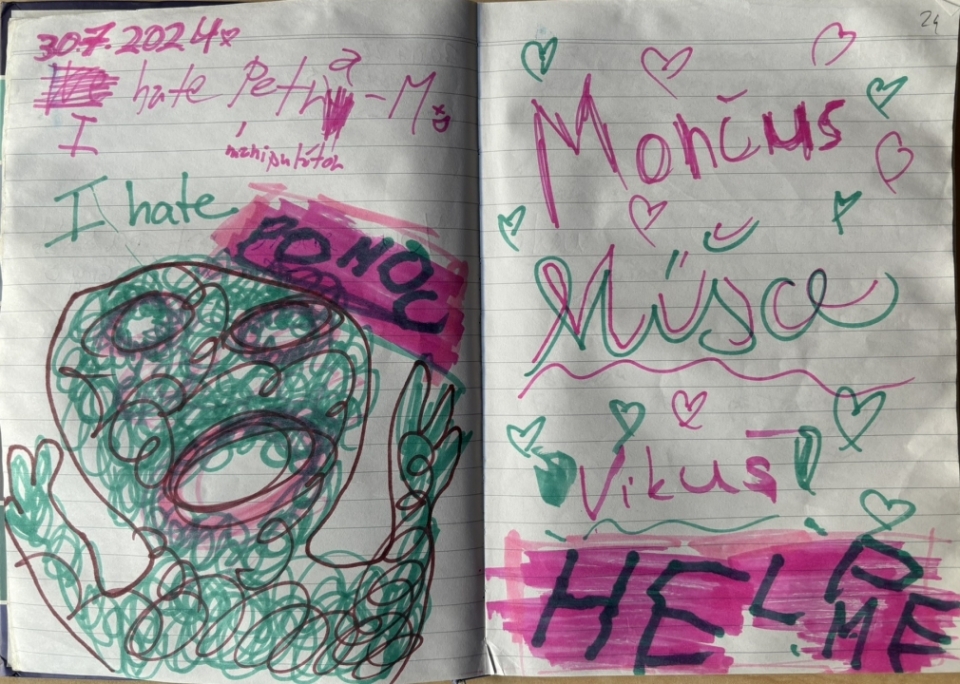 30.7.2024
I hate Petra-M.
manipulátor
I hate
POMOC
24
Mončus
Míša
Vikus
HELP
ME